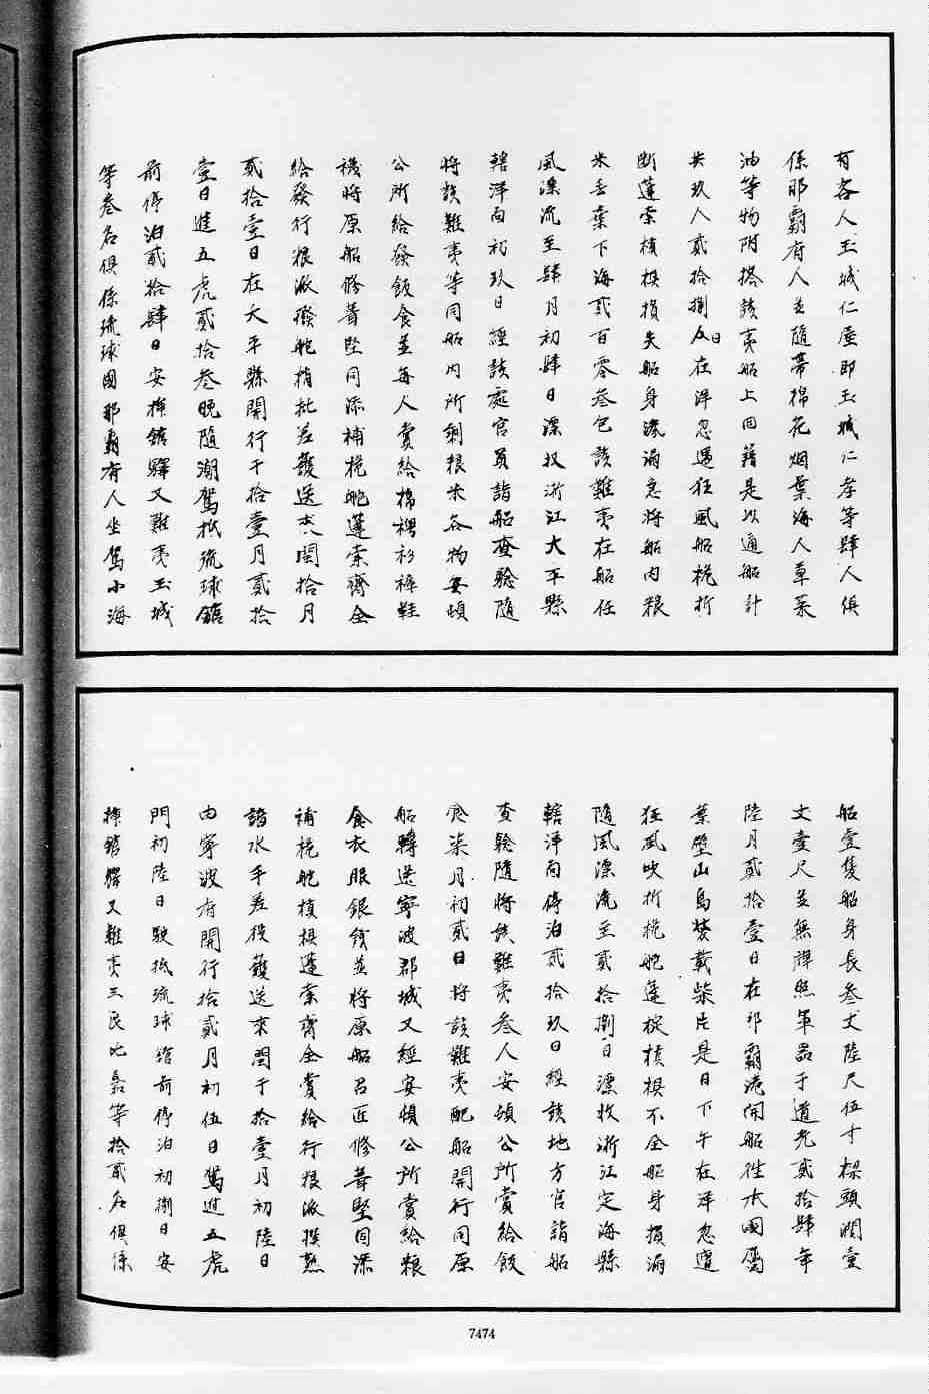 有客人玉城仁屋即玉城仁孝等肆人俱
係那霸府人並隨帶棉花烟葉海人草菜
油等物附搭該夷船上回籍是以通船計
共玖人貳拾捌日在洋忽遇狂風船桅折
斷蓬索槓椇損失船身滲漏急將船內粮
米丢棄下海貳百零叁包該難夷在船任
風漂流至肆月初肆日漂収浙江太平縣
轄洋面初玖日經該處官員詣船查驗隨
將該難夷等同船內所剩粮米各物安頓
公所給發飯食並每人賞給棉裯衫褲鞋
襪將原船修葺堅固添補桅舵蓬索齊全
給發行粮派撥舵梢批差護送來閩拾月
貳拾壹日在太平縣開行于拾壹月貳拾
壹日進五虎貳拾叁晚隨潮駕抵琉球舘
前停泊貳拾肆日安揷舘驛又難夷玉城
等叁名俱係琉球國那霸府人坐駕小海
船壹隻船身長叁丈陸尺伍寸樑頭濶壹
丈壹尺並無牌照軍器于道光貳拾肆年
陸月貳拾壹日在那霸港開船往本國屬
葉壁山島裝載柴片是日下午在洋忽遭
狂風吹折桅舵蓬椗槓椇不全船身損漏
隨風漂流至貳拾捌日漂收浙江定海縣
轄洋面停泊貳拾玖日經該地方官詣船
查驗隨將該難夷叁人安頓公所賞給飯
食柒月初貳日將該難夷配船開行同原
船轉送寧波郡城又經安頓公所賞給粮
食衣服銀錢並將原船召匠修葺堅固添
補桅舵槓椇蓬索齊全賞給行粮派撰熟
諳水手差役護送來閩于拾壹月初陸日
由寧波府開行拾貳月初伍日駕進五虎
門初陸日駛抵琉球舘前停泊初捌日安
揷舘驛又難夷三良比嘉等拾貳名俱係
7474